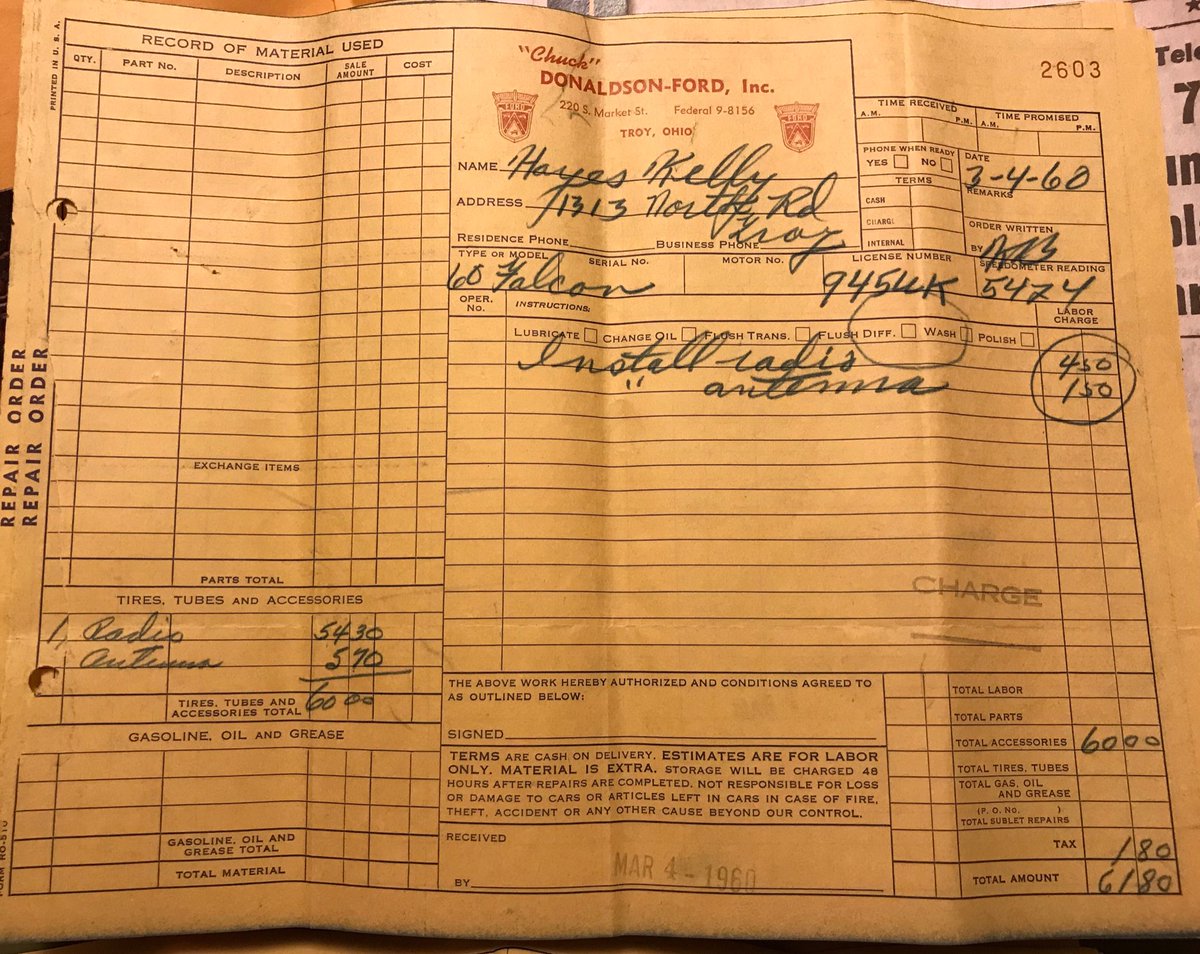 PRINTED IN U. S. A.
RECORD OF MATERIAL USED
QTY. PART No. DESCRIPTION SALE AMOUNT COST
EXCHANGE ITEMS
PARTS TOTAL
TIRES, TUBES AND ACCESSORIES
1 Radio 54 30
Antenna 5 70
TIRES, TUBES AND ACCESSORIES TOTAL 60 00
GASOLINE, OIL AND GREASE
GASOLINE, OIL AND GREASE TOTAL
TOTAL MATERIAL
REPAIR ORDER
REPAIR ORDER
"Chuck"
DONALDSON-FORD, Inc.
220 S. Market St. Federal 9-8156
TROY, OHIO
FORD
FORD
2603
TIME RECEIVED TIME PROMISED
A.M. P.M. A.M. P.M.
PHONE WHEN READY
YES NO
DATE 3-4-60
TERMS
CASH
CHARGE
INTERNAL
REMARKS
ORDER WRITTEN
BY
NAME Hayes Kelly
ADDRESS 1313 North Rd
Troy
RESIDENCE PHONE BUSINESS PHONE
TYPE OR MODEL SERIAL No. MOTOR No. LICENSE NUMBER SPEEDOMETER READING
60 Falcon 5474
OPER. No. INSTRUCTIONS: LABOR CHARGE
LUBRICATE CHANGE OIL FLUSH TRANS. FLUSH DIFF. WASH POLISH
Install radio 4 50
" antenna 1 50
CHARGE
THE ABOVE WORK HEREBY AUTHORIZED AND CONDITIONS AGREED TO
AS OUTLINED BELOW:
SIGNED
TERMS ARE CASH ON DELIVERY. ESTIMATES ARE FOR LABOR
ONLY. MATERIAL IS EXTRA. STORAGE WILL BE CHARGED 48
HOURS AFTER REPAIRS ARE COMPLETED. NOT RESPONSIBLE FOR LOSS
OR DAMAGE TO CARS OR ARTICLES LEFT IN CARS IN CASE OF FIRE,
THEFT, ACCIDENT OR ANY OTHER CAUSE BEYOND OUR CONTROL.
RECEIVED
MAR 4 - 1960
BY
TOTAL LABOR
TOTAL PARTS
TOTAL ACCESSORIES 60 00
TOTAL TIRES, TUBES
TOTAL GAS, OIL AND GREASE
(P. O. No. )
TOTAL SUBLET REPAIRS
TAX 1 80
TOTAL AMOUNT 61 80